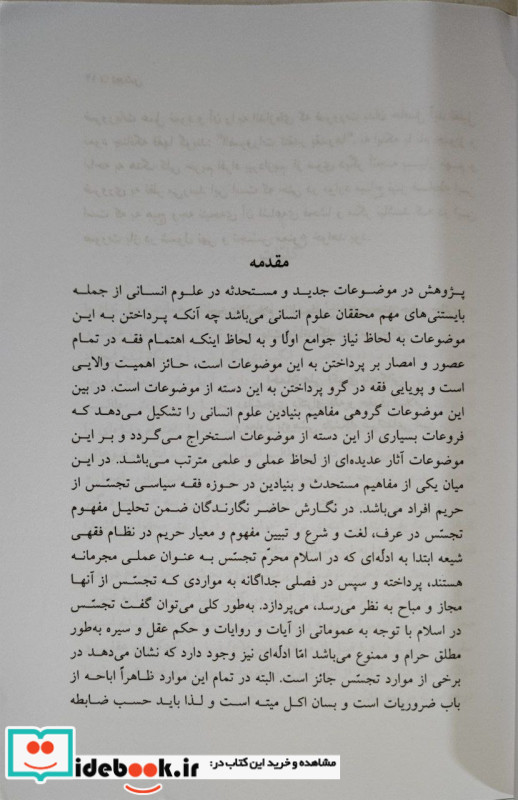 مقدمه
پژوهش در موضوعات جدید و مستحدثه در علوم انسانی از جمله
بایستنی‌های مهم محققان علوم انسانی می‌باشد چه آنکه پرداختن به این
موضوعات به لحاظ نیاز جوامع اولًا و به لحاظ اینکه اهتمام فقه در تمام
عصور و امصار بر پرداختن به این موضوعات است، حائز اهمیت والایی
است و پویایی فقه در گرو پرداختن به این دسته از موضوعات است. در بین
این موضوعات گروهی مفاهیم بنیادین علوم انسانی را تشکیل می‌دهد که
فروعات بسیاری از این دسته از موضوعات استخراج می‌گردد و بر این
موضوعات آثار عدیده‌ای از لحاظ عملی و علمی مترتب می‌باشد. در این
میان یکی از مفاهیم مستحدث و بنیادین در حوزه فقه سیاسی تجسّس از
حریم افراد می‌باشد. در نگارش حاضر نگارندگان ضمن تحلیل مفهوم
تجسّس در عرف، لغت و شرع و تبیین مفهوم و معیار حریم در نظام فقهی
شیعه ابتدا به ادله‌ای که در اسلام محرّم تجسّس به عنوان عملی مجرمانه
هستند، پرداخته و سپس در فصلی جداگانه به مواردی که تجسّس از آنها
مجاز و مباح به نظر می‌رسد، می‌پردازد. به‌طور کلی می‌توان گفت تجسّس
در اسلام با توجه به عموماتی از آیات و روایات و حکم عقل و سیره به‌طور
مطلق حرام و ممنوع می‌باشد امّا ادله‌ای نیز وجود دارد که نشان می‌دهد در
برخی از موارد تجسّس جائز است. البته در تمام این موارد ظاهراً اباحه از
باب ضروریات است و بسان اکل میته است و لذا باید حسب ضابطه
مشاهده و خرید این کتاب در:
idebook.ir